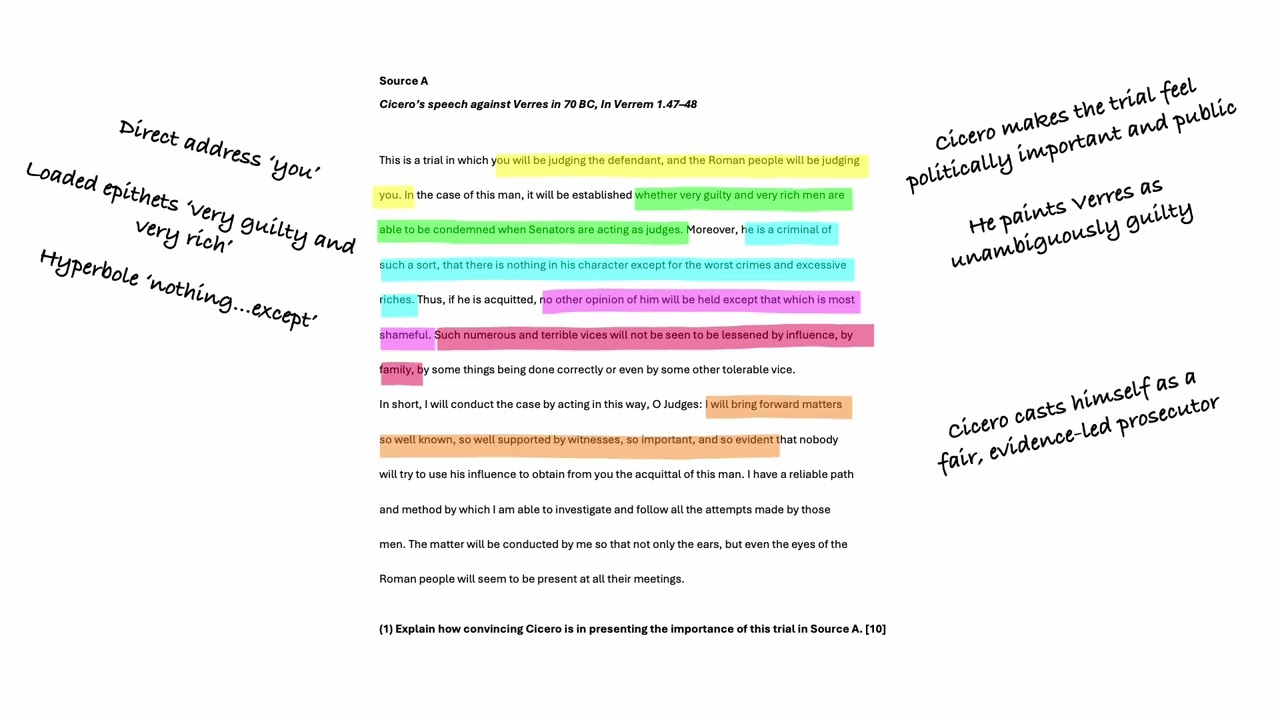 Source A
Cicero's speech against Verres in 70 BC, In Verrem 1.47–48
This is a trial in which you will be judging the defendant, and the Roman people will be judging
you. In the case of this man, it will be established whether very guilty and very rich men are
able to be condemned when Senators are acting as judges. Moreover, he is a criminal of
such a sort, that there is nothing in his character except for the worst crimes and excessive
riches. Thus, if he is acquitted, no other opinion of him will be held except that which is most
shameful. Such numerous and terrible vices will not be seen to be lessened by influence, by
family, by some things being done correctly or even by some other tolerable vice.
In short, I will conduct the case by acting in this way, O Judges: I will bring forward matters
so well known, so well supported by witnesses, so important, and so evident that nobody
will try to use his influence to obtain from you the acquittal of this man. I have a reliable path
and method by which I am able to investigate and follow all the attempts made by those
men. The matter will be conducted by me so that not only the ears, but even the eyes of the
Roman people will seem to be present at all their meetings.
(1) Explain how convincing Cicero is in presenting the importance of this trial in Source A. [10]
Direct address 'you'
Loaded epithets 'very guilty and
very rich'
Hyperbole 'nothing...except'
Cicero makes the trial feel
politically important and public
He paints Verres as
unambiguously guilty
Cicero casts himself as a
fair, evidence-led prosecutor